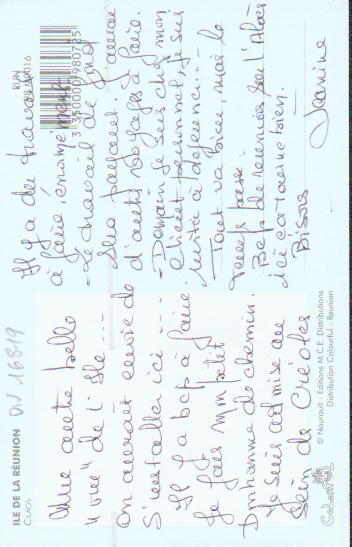 ILE DE LA RÉUNION
CILAOS
DV 16819
Une autre belle
"vue" de l'Ile ....
On aurait envie de
s'installer ici ----
Il y a bcp à faire.
Je fais mon petit
bonhomme de chemin.
Je suis admise au
sein de Créoles
© Nourault - Editions M.C.E. Distributions
Distribution Colourful - Reunion
RUN
3 350000 980785
Il y a du travail
à faire, énormément
- Le travail de fond
d'autres voyages à faire.
- Demain je suis chez mon
client personnel, je suis
invité à déjeuner...
Tout va bien, mais le
temps passe.
ici ça tourne bien.
Bisous
Jeanine